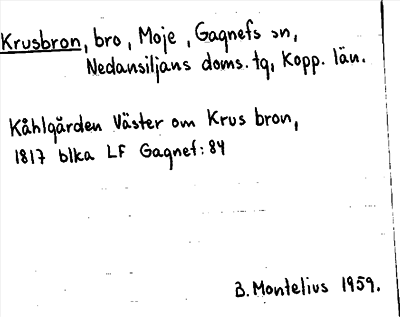 Krusbron, bro, Moje, Gagnefs sn,
Nedansiljans doms. tg, Kopp. län.
Kåhlgården Väster om Krus bron,
1817 blka LF Gagnef: 84
B. Montelius 1959.